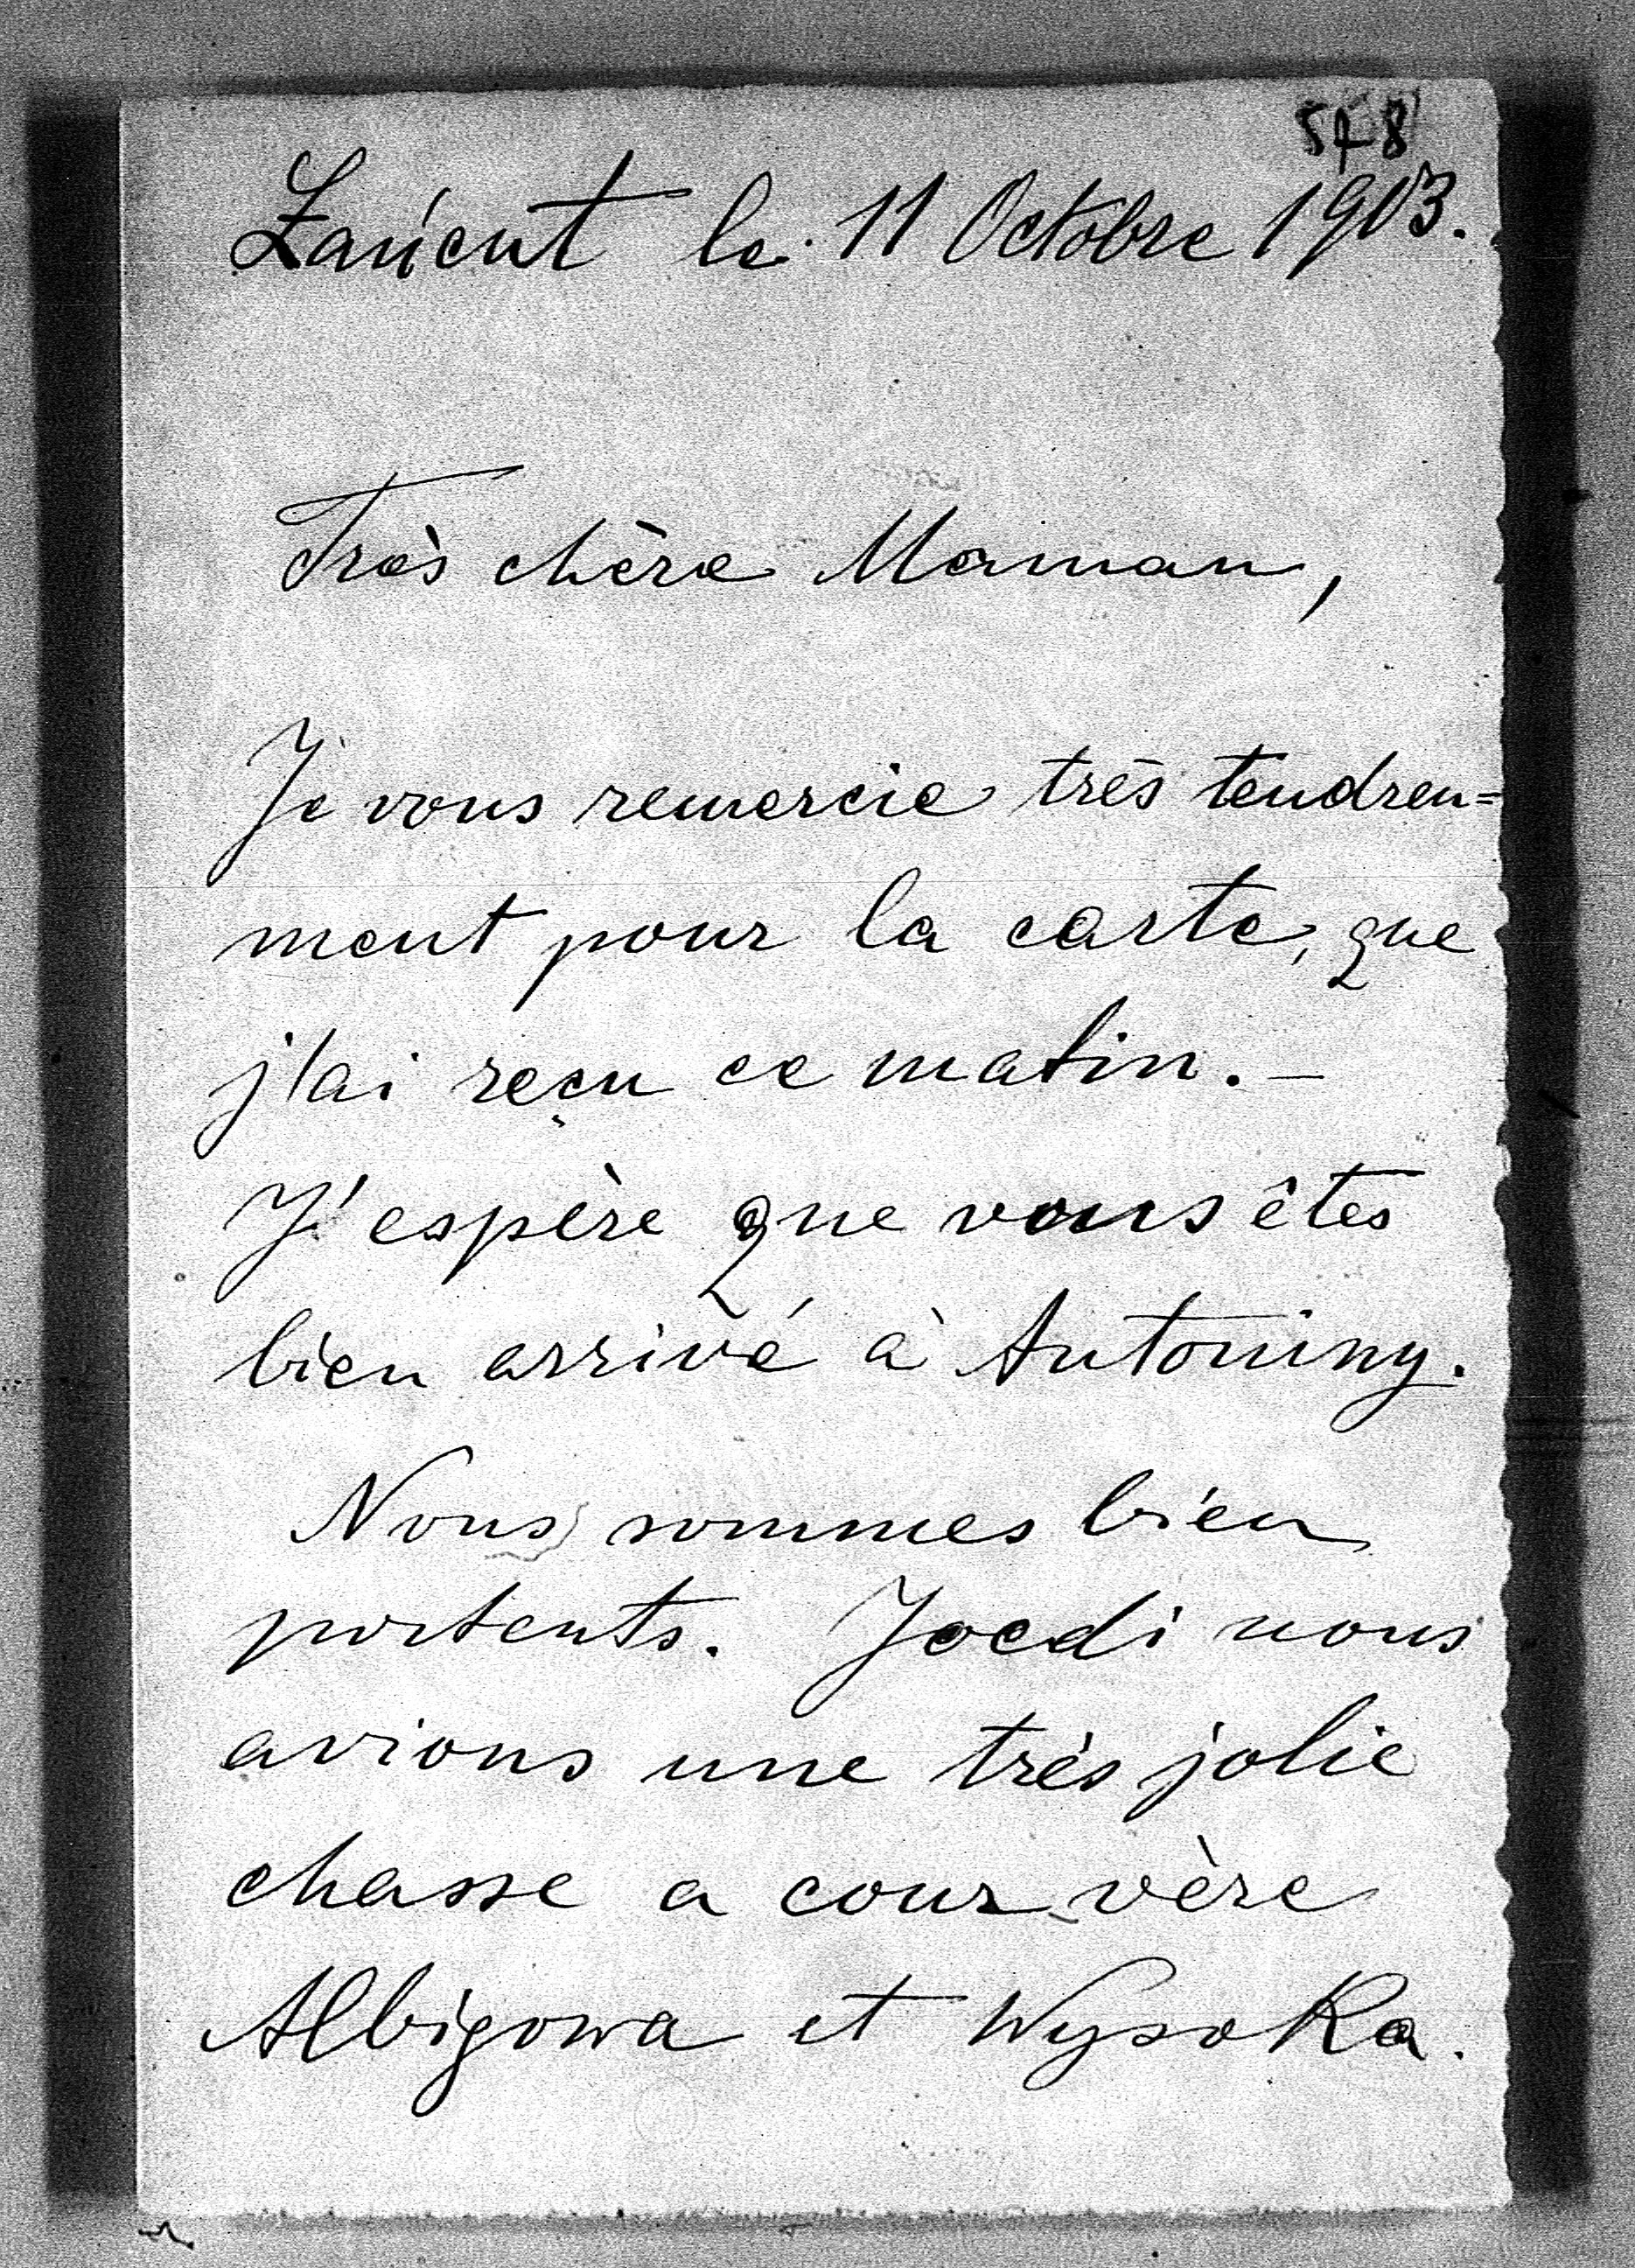 578
Łańcut le 11 Octobre 1903.
Très chère Maman,
Je vous remercie très tendren=
ment pour la carte, que
j'ai reçu ce matin. –
J'espère que vous êtes
bien arrivé à Antoniny.
Nous sommes bien
portents. Joedi nous
avions une très jolie
chasse a cour vère
Albigowa et Wysoka.